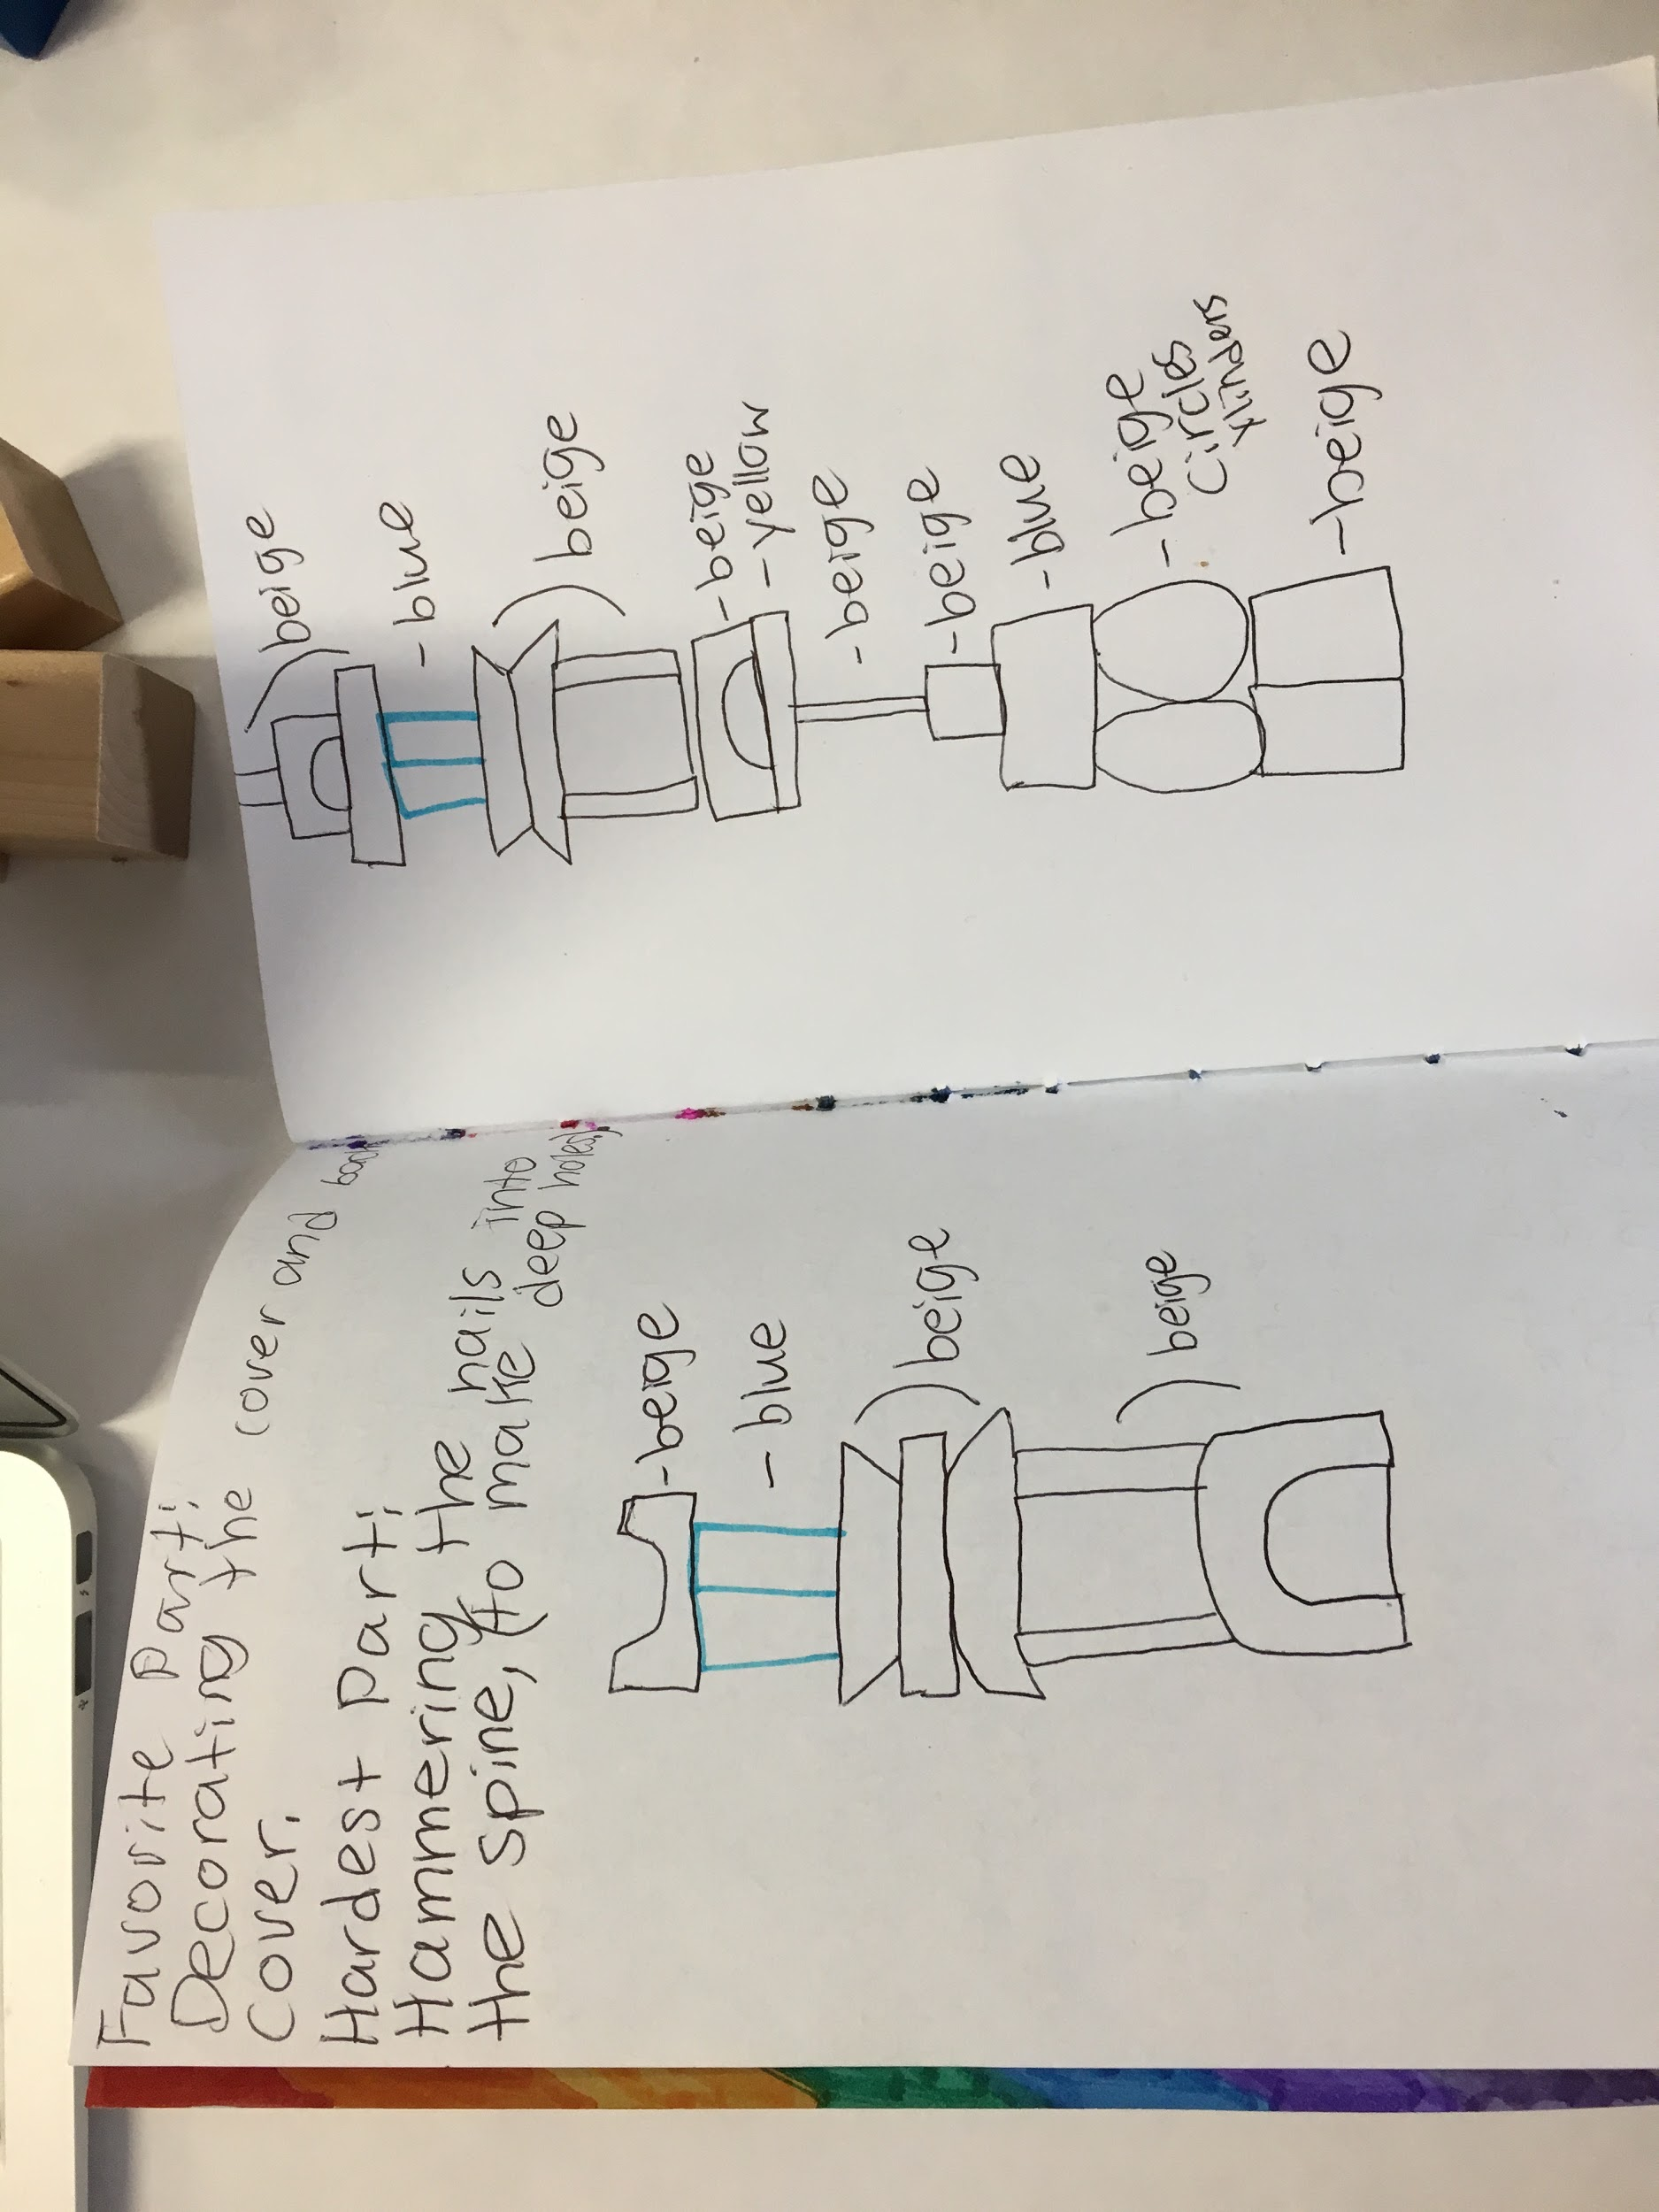 Favorite Part:
Decorating the cover and back
cover.
Hardest Part:
Hammering the nails into
the spine, (to make deep holes)
-beige
-blue
beige
beige
beige
-blue
beige
-beige
-yellow
-beige
-beige
-blue
-beige
circles
ylinders
-beige